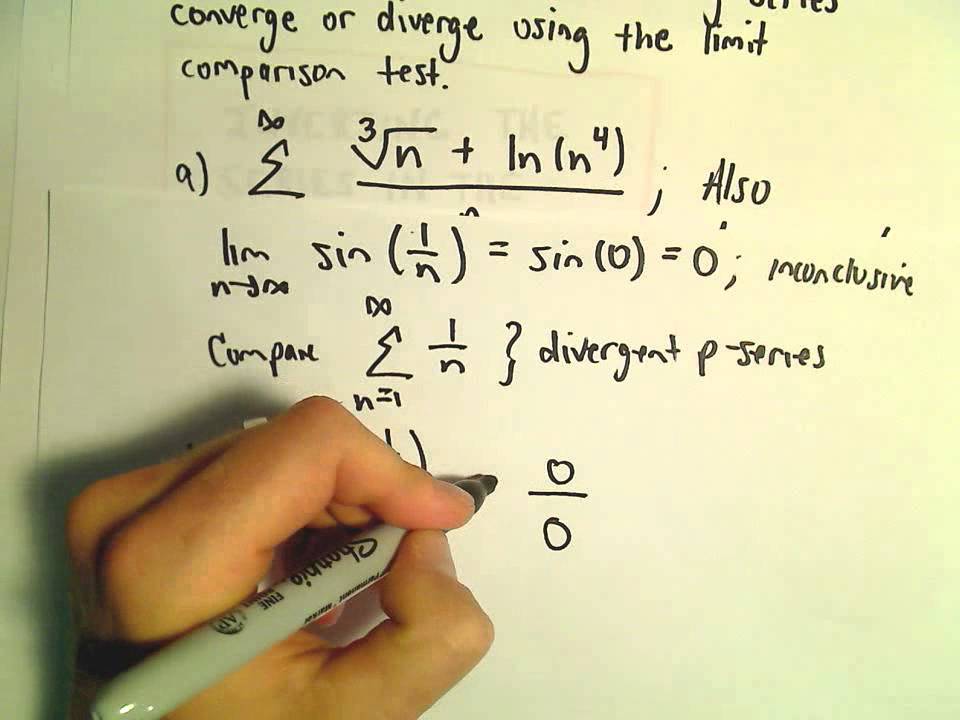 series
converge or diverge using the limit
comparison test.
a) ∞ Σ ∛n + ln(n⁴) / n ; Also
lim n→∞ sin(1/n) = sin(0) = 0 ; inconclusive
Compare ∞ Σ n=1 1/n } divergent p-series
)
0/0
Sharpie
FINE
Permanent Marker